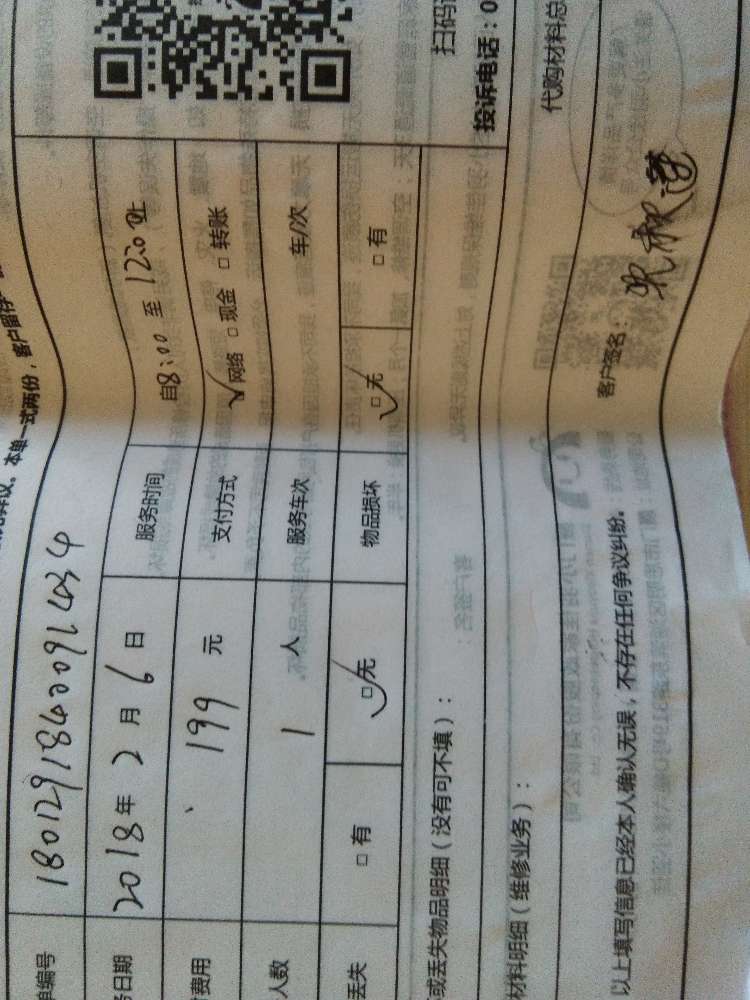 本单一式两份，客户留存一
单编号 180129184009614034
务日期 2018年2月6日 服务时间 自8:00 至 12:00 止
费用 199 元 支付方式 网络 □ 现金 □ 转账
人数 1 人 服务车次 车/次
丢失 □ 有 □ 无 物品损坏 □ 无 □ 有
或丢失物品明细（没有可不填）：
扫码
投诉电话：0
材料明细（维修业务）：
代购材料总
以上填写信息已经本人确认无误，不存在任何争议纠纷。
客户签名：